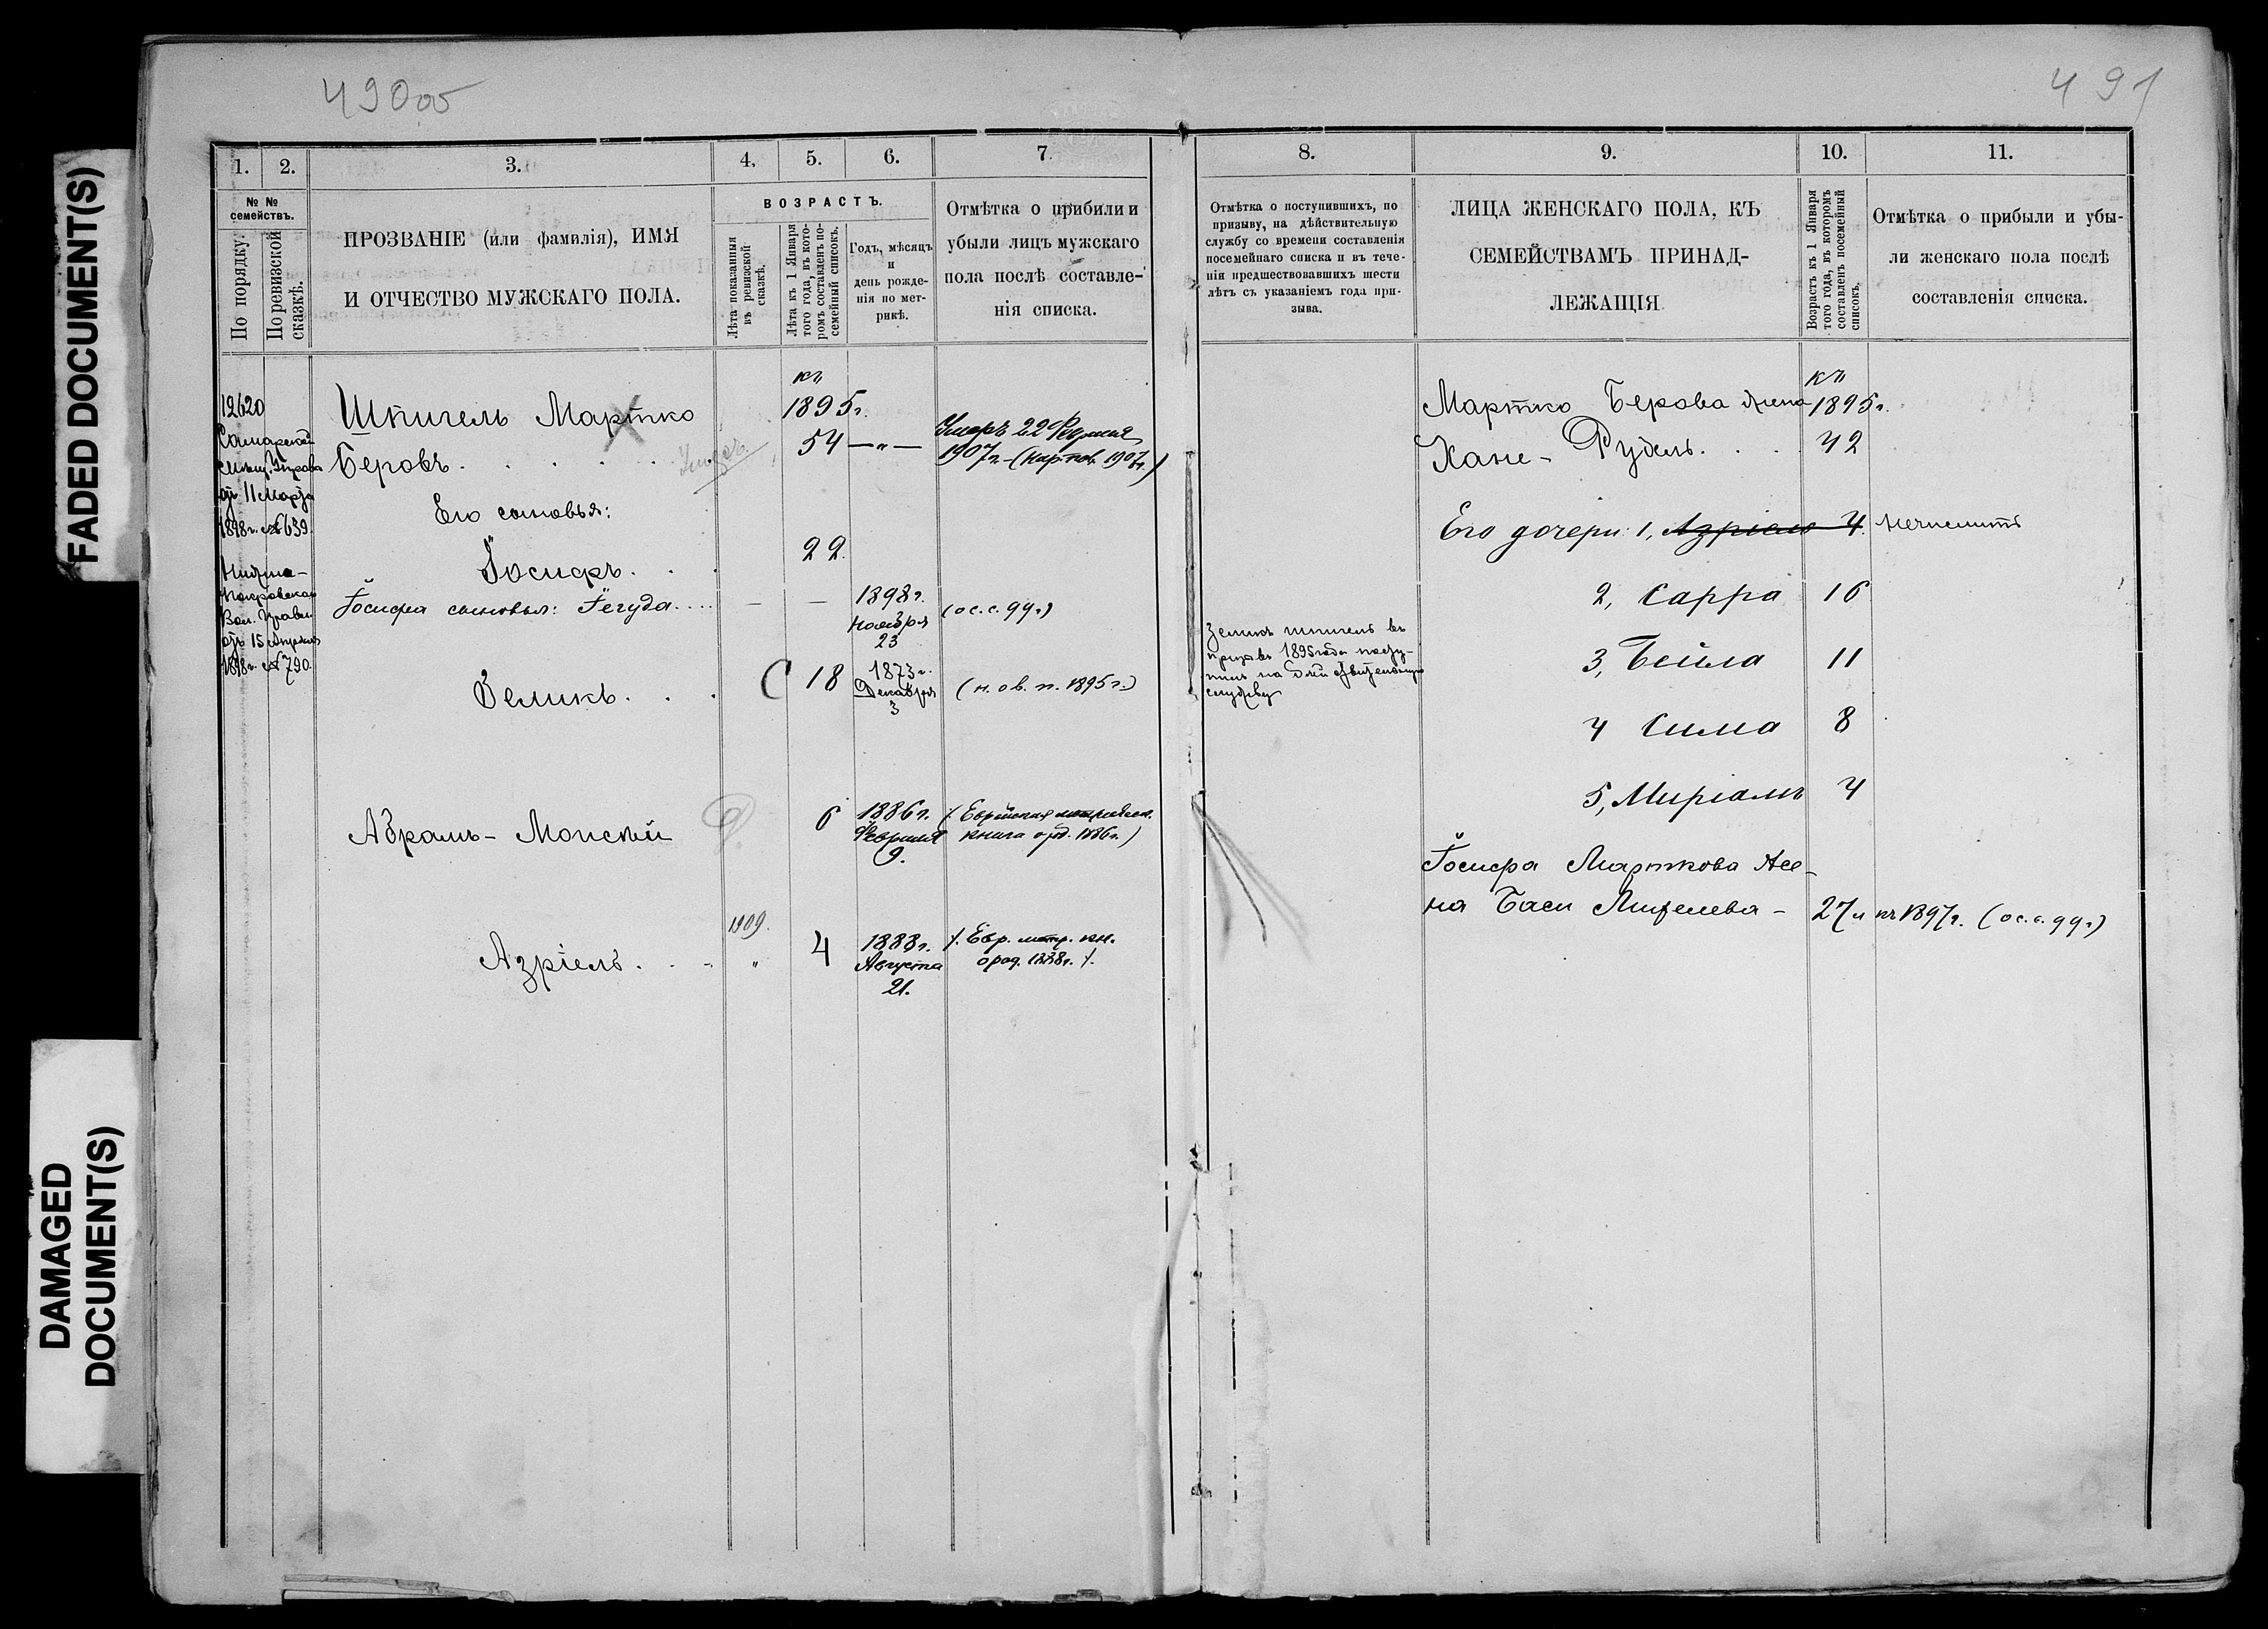 FADED DOCUMENT(S)
DAMAGED
DOCUMENT(S)
490об
491
1.
2.
3.
4.
5.
6.
7.
№ №
семействъ.
По порядку.
По ревизской
сказкѣ.
ПРОЗВАНІЕ (или фамилія), ИМЯ
И ОТЧЕСТВО МУЖСКАГО ПОЛА.
ВОЗРАСТЪ.
Лѣта показанныя
въ ревизской
сказкѣ.
Лѣта къ 1 Января
того года, въ кото-
ромъ составленъ по-
семейный списокъ.
Годъ, мѣсяцъ
и
день рожде-
нія по мет-
рикѣ.
Отмѣтка о прибили и
убыли лицъ мужскаго
пола послѣ составле-
нія списка.
12620
Самарской
от 11 Марта
1898г. № 639.
Покровское
Вол. Правл.
отъ 15 Апрѣля
1898г. № 790.
Шпигель Мартко
Беровъ. . . . .
Умеръ
къ
1895г.
54 —"—
Умеръ 22 Февраля
1907г.
Его сыновья:
Іосифъ. . .
22.
Іосифа сыновья: Іегуда....
— —
1898г.
Ноября
23
(ос.с. 99г)
Зеликъ. . .
С 18
1873г.
Декабря
3
(н. о в. п. 1895г.)
Абрамъ-Моисей
6
1886г.
Февраля
9.
(Еврейская метрическ.
книга о род. 1886г.)
Азріель. . .
1909.
"
4
1888г.
Августа
21.
/. Евр. метр. кн.
о род. 1888г. /.
8.
9.
10.
11.
Отмѣтка о поступившихъ, по
призыву, на дѣйствительную
службу со времени составленія
посемейнаго списка и въ тече-
ніи предшествовавшихъ шести
лѣтъ съ указаніемъ года при-
зыва.
ЛИЦА ЖЕНСКАГО ПОЛА, КЪ
СЕМЕЙСТВАМЪ ПРИНАД-
ЛЕЖАЩІЯ
Возрастъ къ 1 Января
того года, въ которомъ
составленъ посемейный
списокъ.
Отмѣтка о прибыли и убы-
ли женскаго пола послѣ
составленія списка.
Зеликъ Шпигель въ
призывъ 1895 года посту-
пилъ на дѣйствительную
службу
Мартко Берова жена
Хане-Рудель. . . .
къ
1895г.
42
Его дочери: 1, Азріель 4.
2, Сарра 16
3, Бейла 11
4 Сима 8
5, Миріамъ 4
Іосифа Марткова же-
на Баси
27л къ 1897г. (ос.с. 99г)